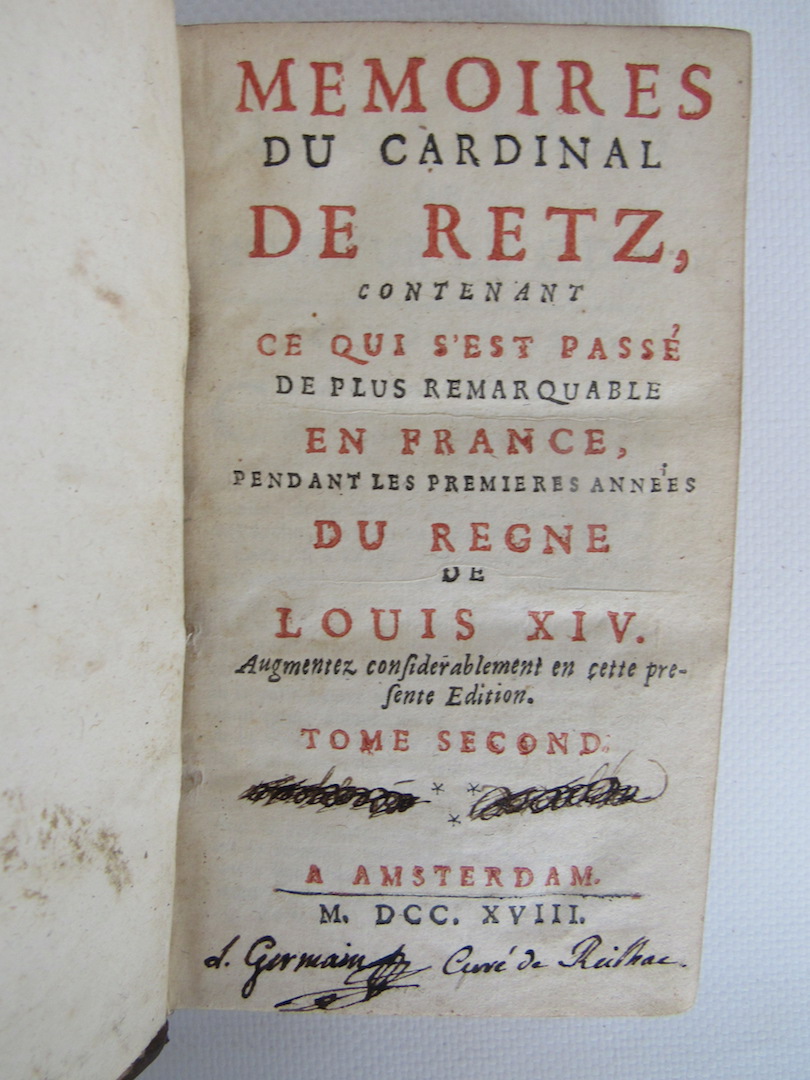 MEMOIRES
DU CARDINAL
DE RETZ,
CONTENANT
CE QUI S'EST PASSÉ
DE PLUS REMARQUABLE
EN FRANCE,
PENDANT LES PREMIERES ANNÉES
DU REGNE
DE
LOUIS XIV.
Augmentez considerablement en cette pre-
sente Edition.
TOME SECOND.
* * *
A AMSTERDAM.
M. DCC. XVIII.
Germain Curé de Reilhac.